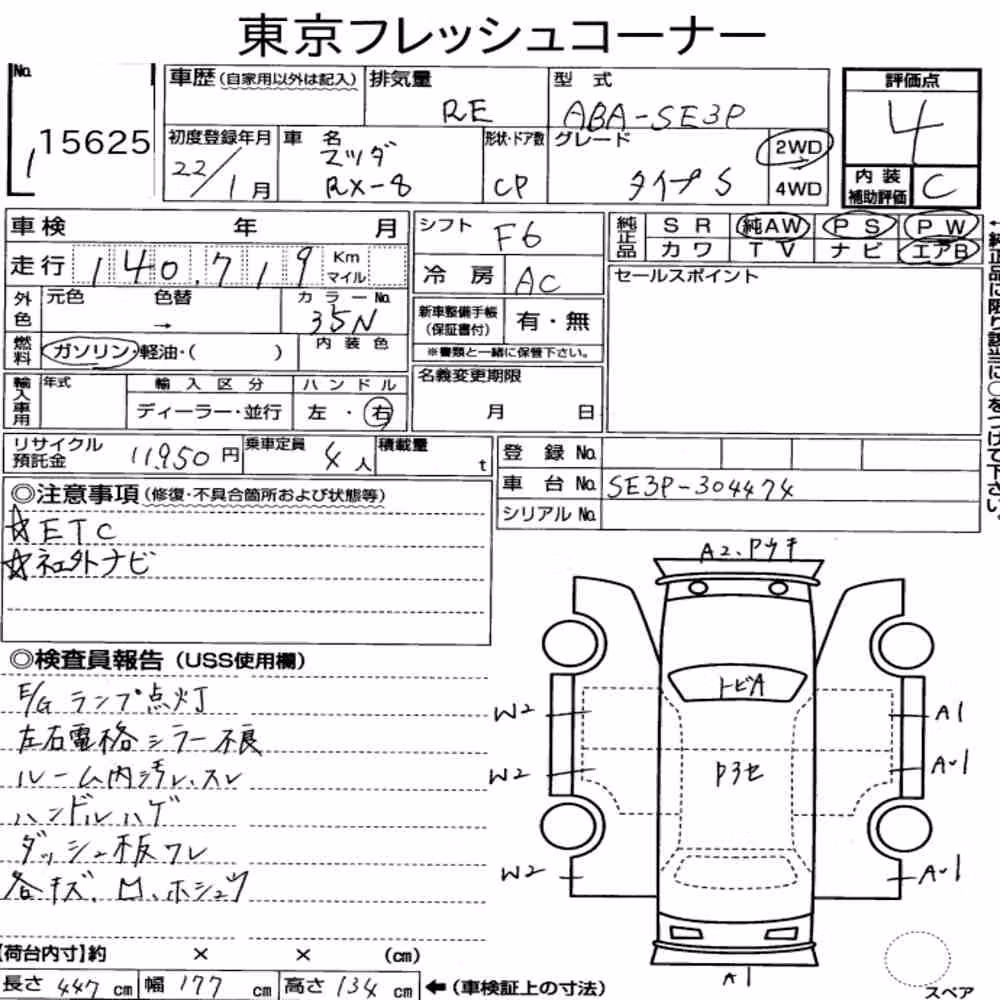 東京フレッシュコーナー
No.
15625
車歴(自家用以外は記入)
排気量
RE
型 式
ABA-SE3P
評価点
4
初度登録年月
22/1月
車 名
マツダ
RX-8
形状・ドア数
CP
グレード
タイプS
2WD
4WD
内装
補助評価
C
車検 年 月
シフト
F6
純正品
SR 純AW PS PW
カワ TV ナビ エアB
走行
140,719
Km
マイル
冷房
AC
セールスポイント
外色
元色 色替
→
カラーNo.
35N
新車整備手帳
(保証書付)
有・無
※書類と一緒に保管下さい。
燃料
ガソリン・軽油・( )
内装色
輸入車用
年式
輸入区分
ディーラー・並行
ハンドル
左・右
名義変更期限
月 日
←純正品に限り該当に○をつけて下さい。
リサイクル
預託金
11,950円
乗車定員
4人
積載量
t
登 録 No.
車 台 No.
SE3P-304474
シリアルNo.
◎注意事項(修復・不具合箇所および状態等)
☆ETC
☆社外ナビ
◎検査員報告(USS使用欄)
E/Gランプ点灯
左右電格ミラー不良
ルーム内汚レ、スレ
ハンドルハゲ
ダッシュ板ワレ
各キズ、凹、ホシュウ
A2、Pウキ
トビA
W2
A1
W2
P3セ
A1
W2
A1
A1
スペア
【荷台内寸】約 × × (cm)
長さ 447 cm 幅 177 cm 高さ 134 cm ←(車検証上の寸法)